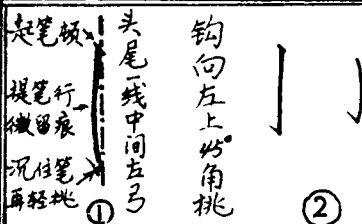 起笔顿
提笔行
微留痕
沉住笔
再轻挑
头尾一线中间左弓
①
钩向左上45°角挑
②